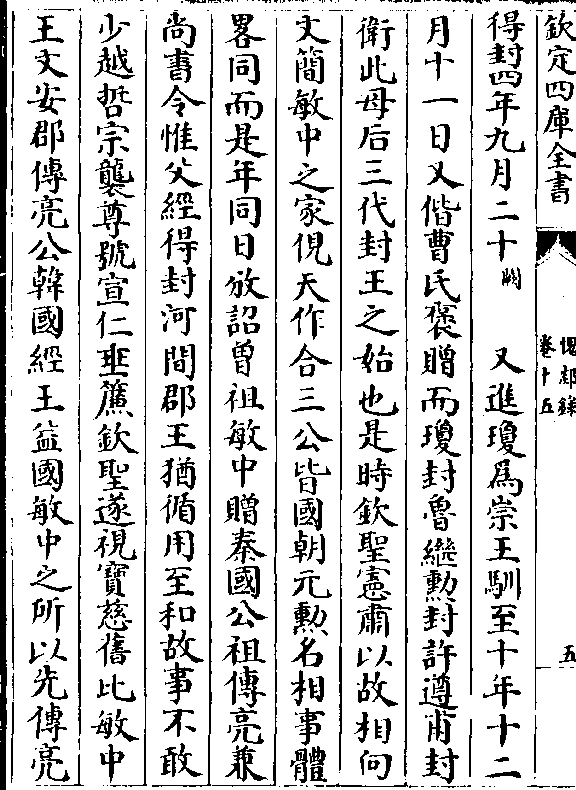 欽定四庫全書
愧郯錄
卷十五
五
得封四年九月二十闕又進瓊爲崇王馴至十年十二
月十一日又偕曹氏褒贈而瓊封魯繼勲封許遵甫封
衛此母后三代封王之始也是時欽聖憲肅以故相向
文簡敏中之家俔天作合三公皆國朝元勲名相事體
畧同而是年同日攽詔曾祖敏中贈秦國公祖傳亮兼
尚書令惟父經得封河間郡王猶循用至和故事不敢
少越哲宗襲尊號宣仁垂簾欽聖遂視寶慈舊比敏中
王文安郡傳亮公韓國經王益國敏中之所以先傳亮